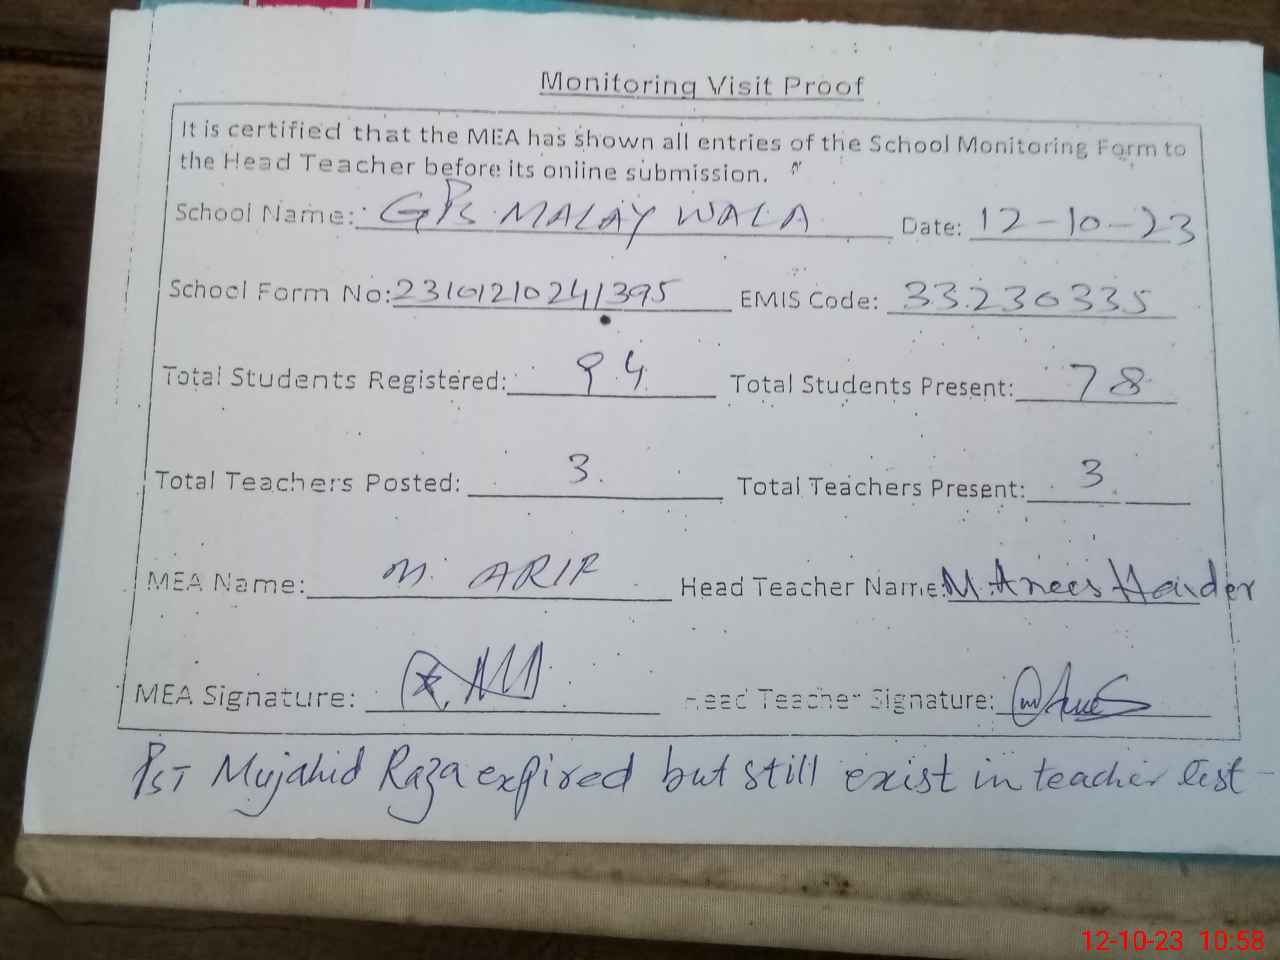 Monitoring Visit Proof
It is certified that the MEA has shown all entries of the School Monitoring Form to
the Head Teacher before its online submission.
School Name: GPS MALAY WALA Date: 12-10-23
School Form No: 23101210241395 EMIS Code: 33230335
Total Students Registered: 94 Total Students Present: 78
Total Teachers Posted: 3 Total Teachers Present: 3
MEA Name: M. ARIF Head Teacher Name: M. Anees Haider
MEA Signature: Head Teacher Signature:
PST Mujahid Raza expired but still exist in teacher list -
12-10-23 10:58